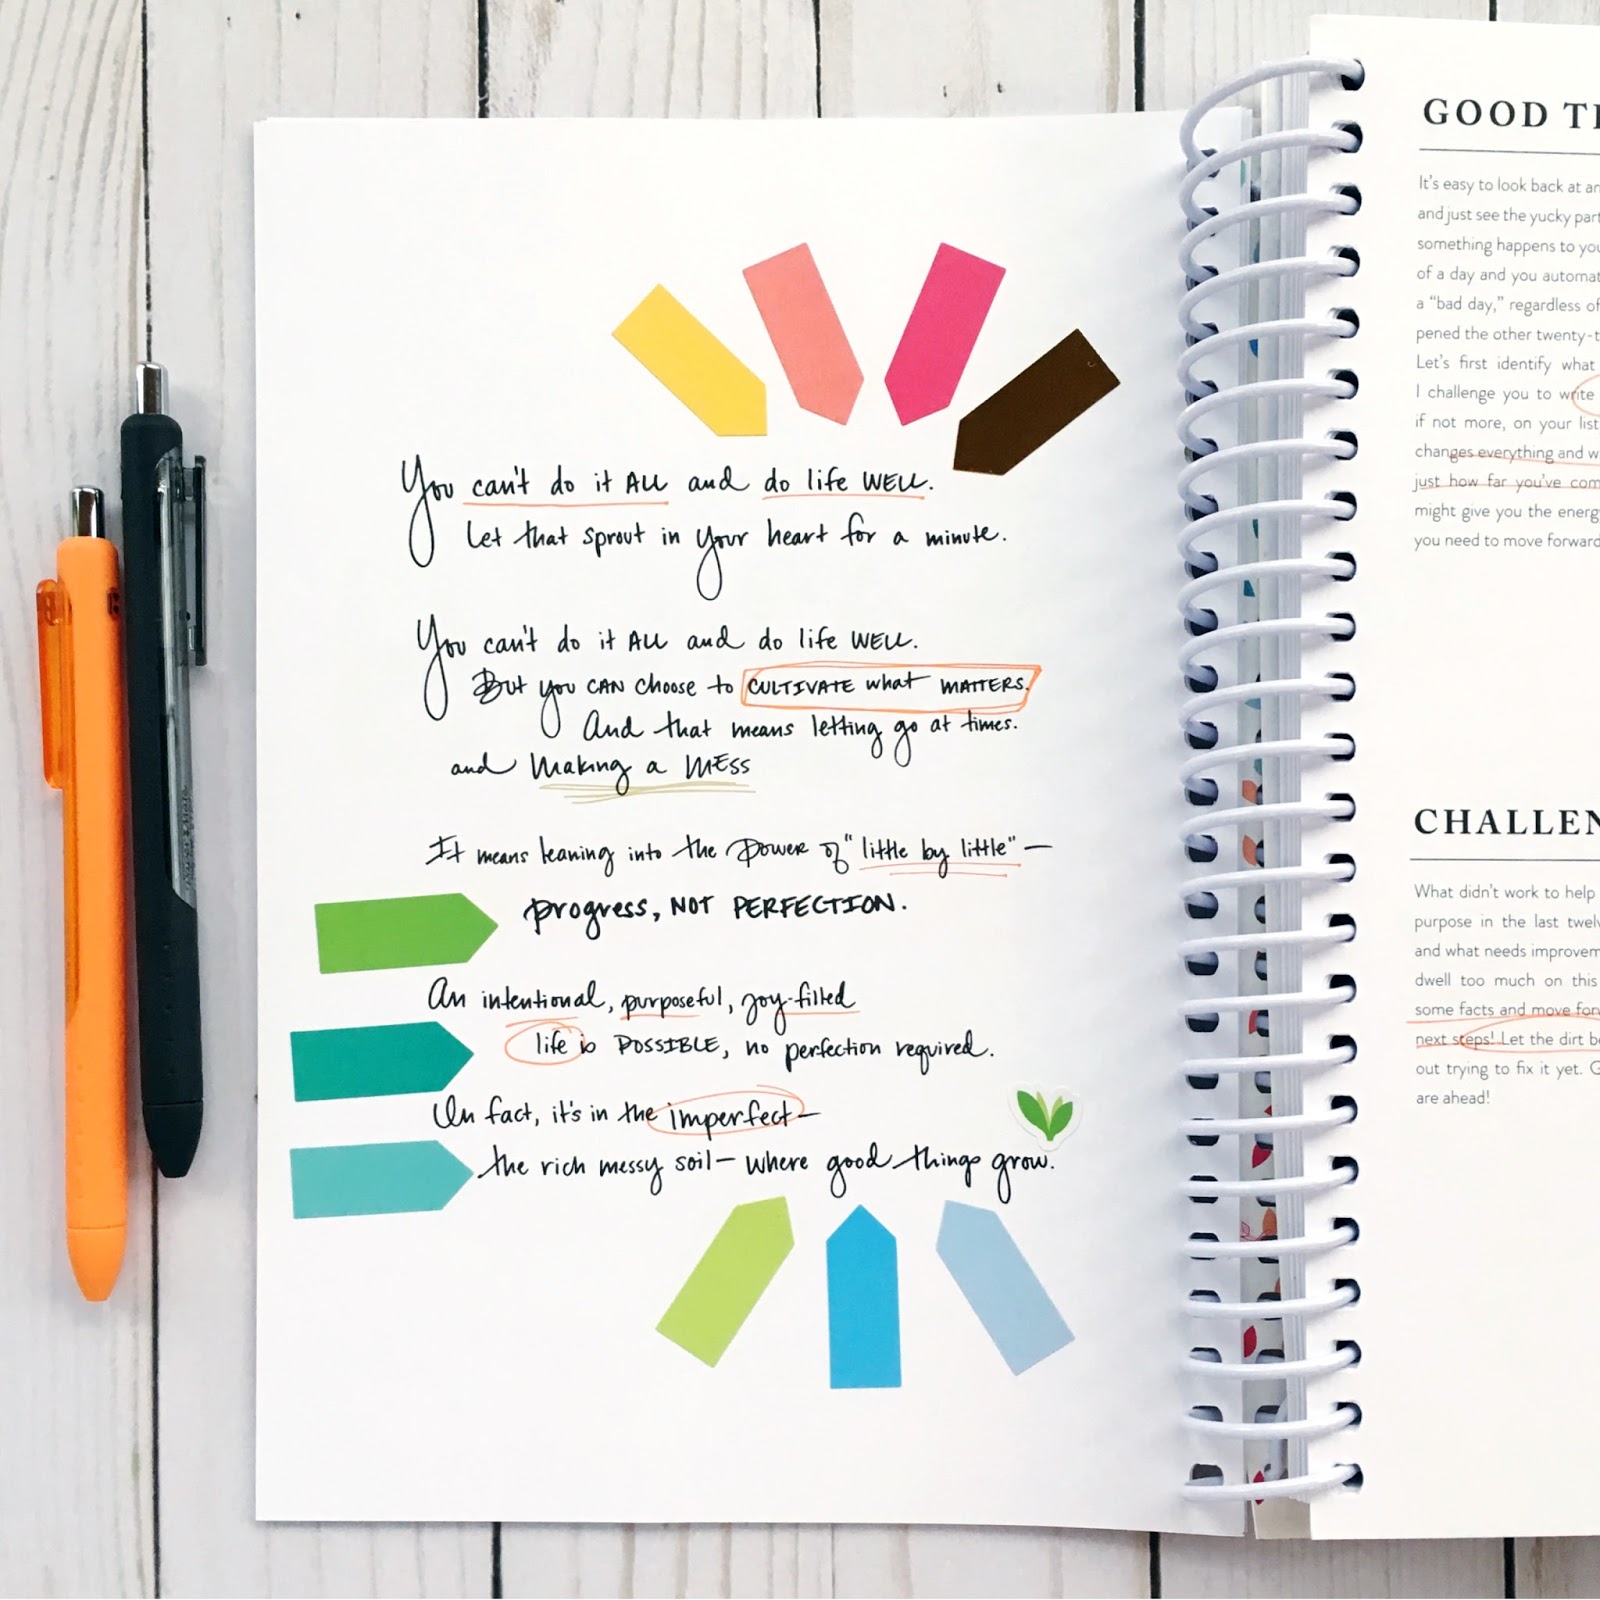 You can't do it ALL and do life WELL.
Let that sprout in your heart for a minute.
You can't do it ALL and do life WELL.
But you CAN choose to CULTIVATE what MATTERS.
And that means letting go at times.
and making a MESS
It means leaning into the power of "little by little" –
progress, NOT PERFECTION.
An intentional, purposeful, joy-filled
life is POSSIBLE, no perfection required.
In fact, it's in the imperfect –
the rich messy soil – where good things grow.
GOOD
It's easy to look back at
and just see the yucky
something happens to
of a day and you
a "bad day," regardless
pened the other
Let's first identify what
I challenge you to write
if not more, on your list
changes everything and
just how far you've
might give you the
you need to move forward
What didn't work to help
purpose in the last
and what needs
dwell too much on this
some facts and move
next steps! Let the dirt
out trying to fix it yet.
are ahead!